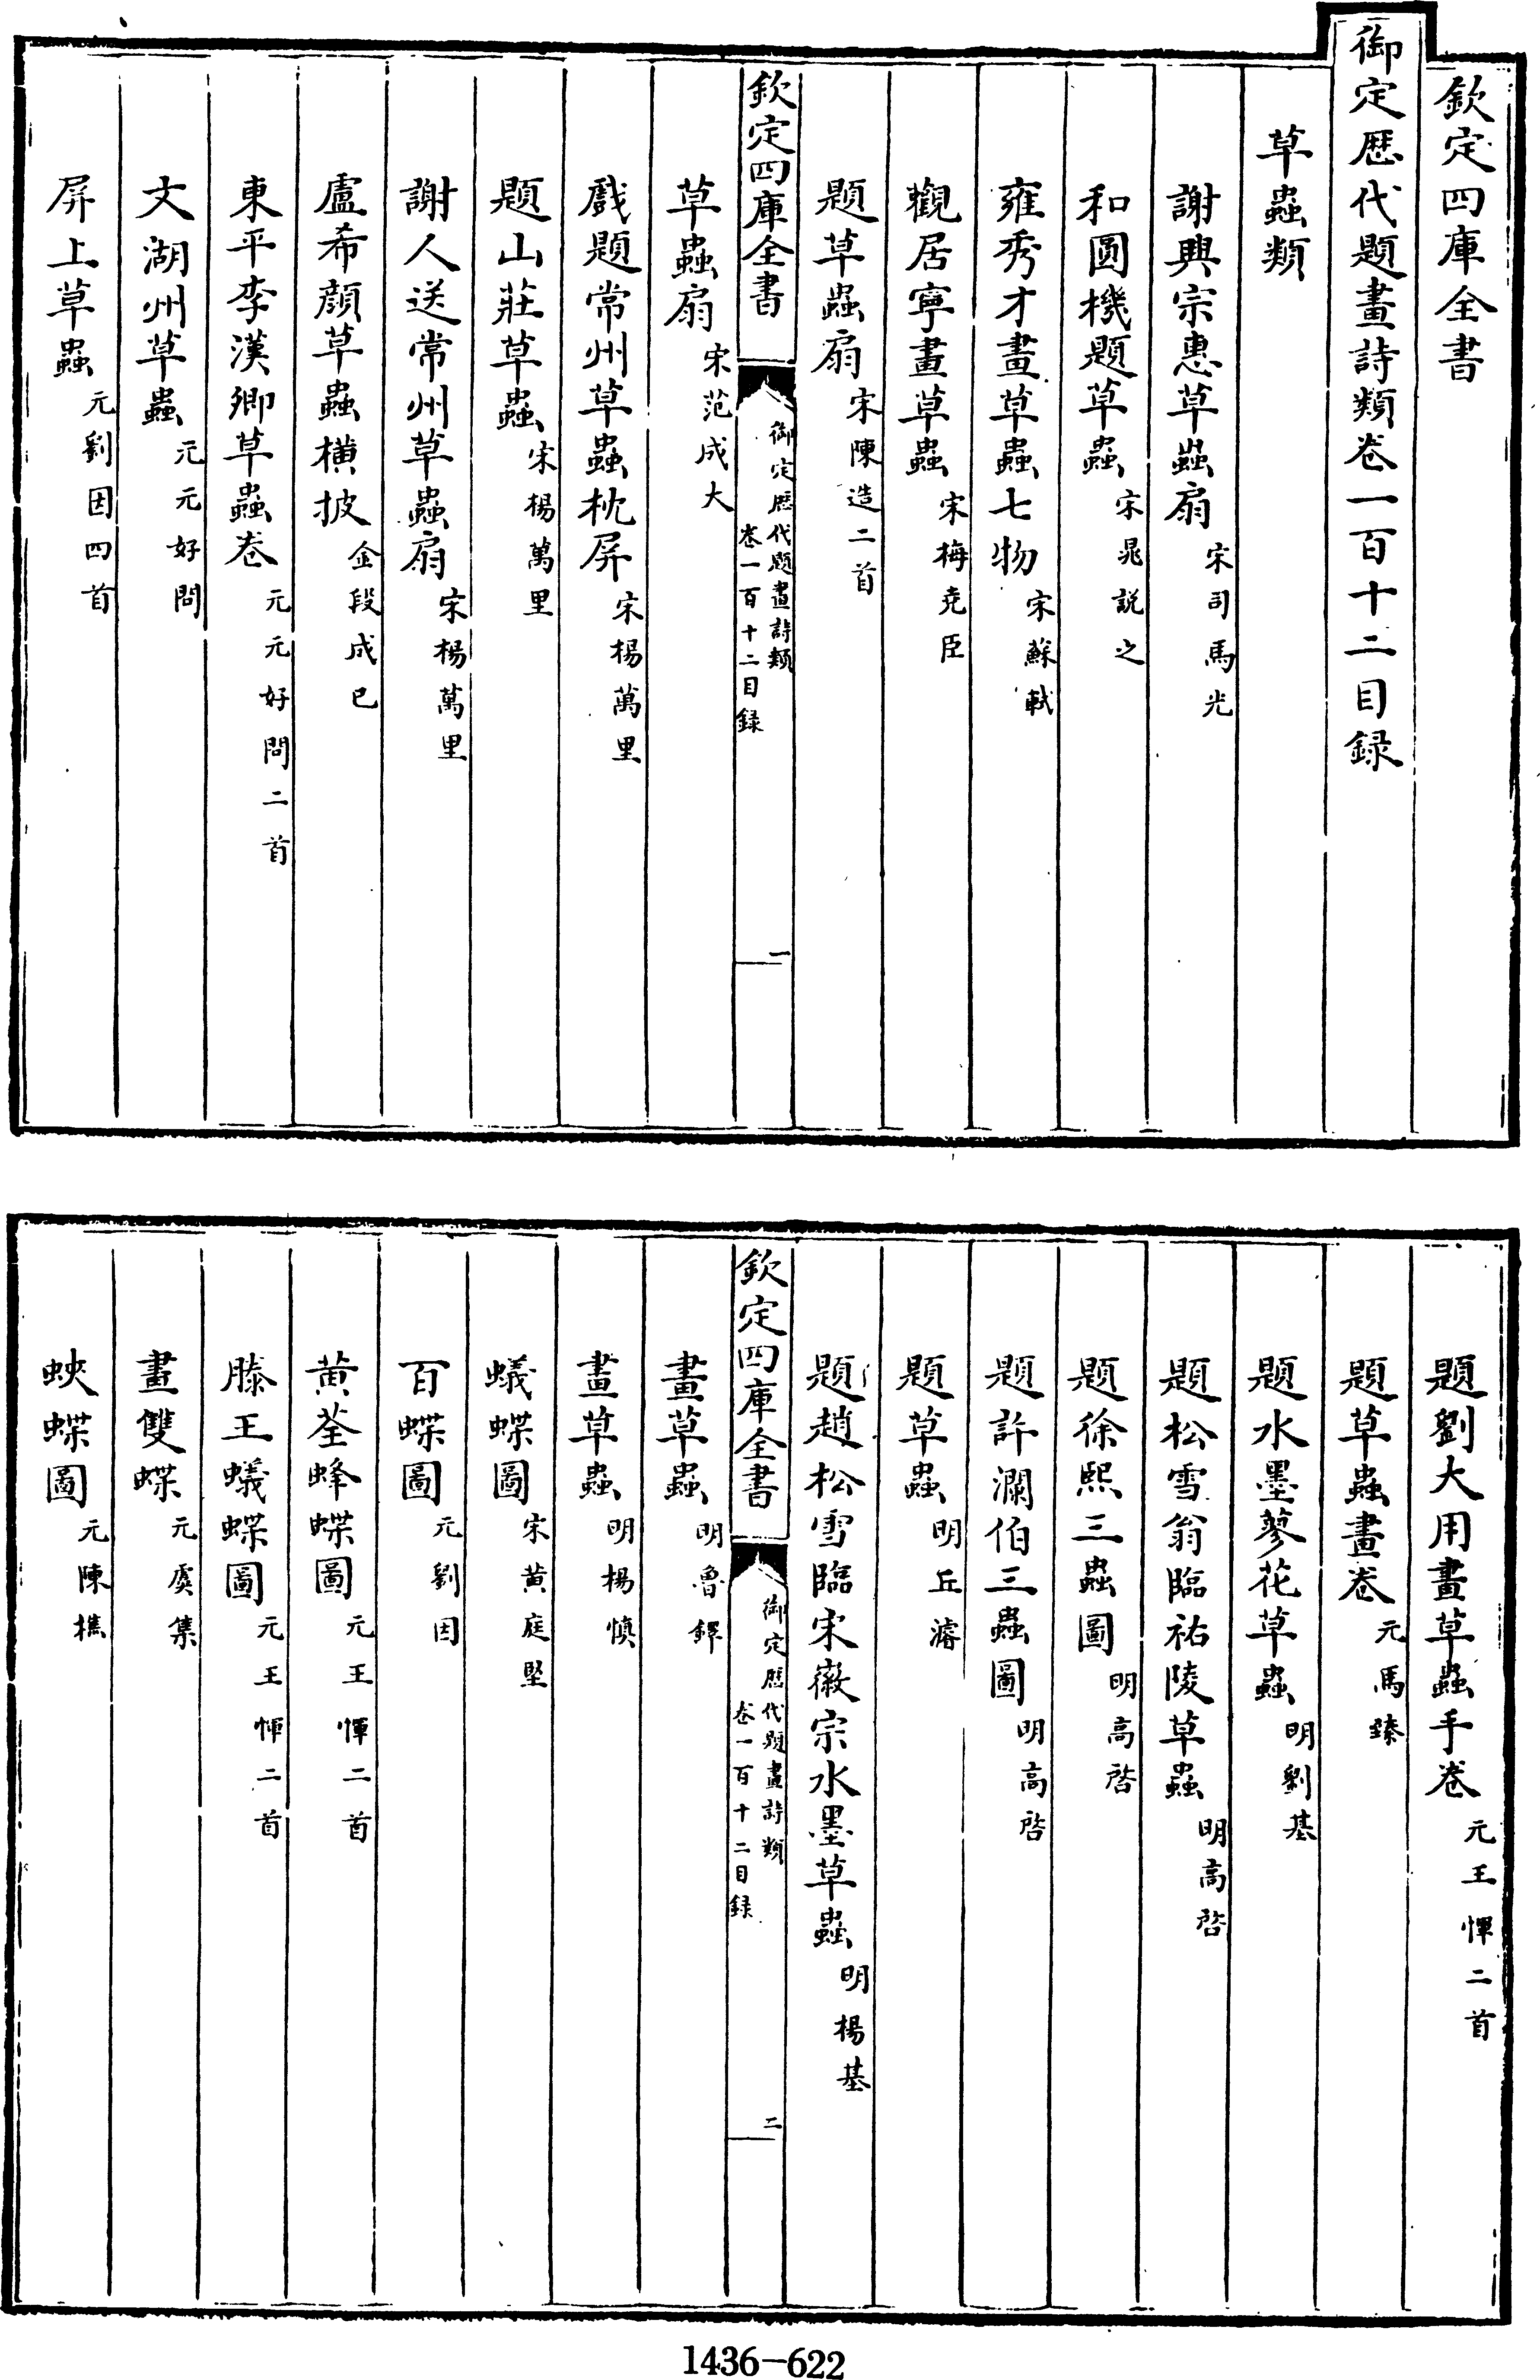 欽定四庫全書
御定歷代題畫詩類卷一百十二目録
草蟲類
謝興宗惠草蟲扇宋司馬光
和圓機題草蟲宋晁說之
雍秀才畫草蟲七物宋蘇軾
觀居寧畫草蟲宋梅堯臣
題草蟲扇宋陳造二首
欽定四庫全書
御定歷代題畫詩類
卷一百十二目録
一
草蟲扇宋范成大
戲題常州草蟲枕屏宋楊萬里
題山莊草蟲宋楊萬里
謝人送常州草蟲扇宋楊萬里
盧希顏草蟲橫披金段成已
東平李漢卿草蟲卷元元好問二首
文湖州草蟲元元好問
屏上草蟲元劉因四首
題劉大用畫草蟲手卷元王惲二首
題草蟲畫卷元馬臻
題水墨蓼花草蟲明劉基
題松雪翁臨祐陵草蟲明高啓
題徐熙三蟲圖明高啓
題許瀾伯三蟲圖明高啓
題草蟲明丘濬
題趙松雪臨宋徽宗水墨草蟲明楊基
欽定四庫全書
御定歷代題畫詩類
卷一百十二目録
二
畫草蟲明魯鐸
畫草蟲明楊慎
蟻蝶圖宋黄庭堅
百蝶圖元劉因
黄荃蜂蝶圖元王惲二首
滕王蟻蝶圖元王惲二首
畫雙蝶元虞集
蛺蝶圖元陳樵
1436-622